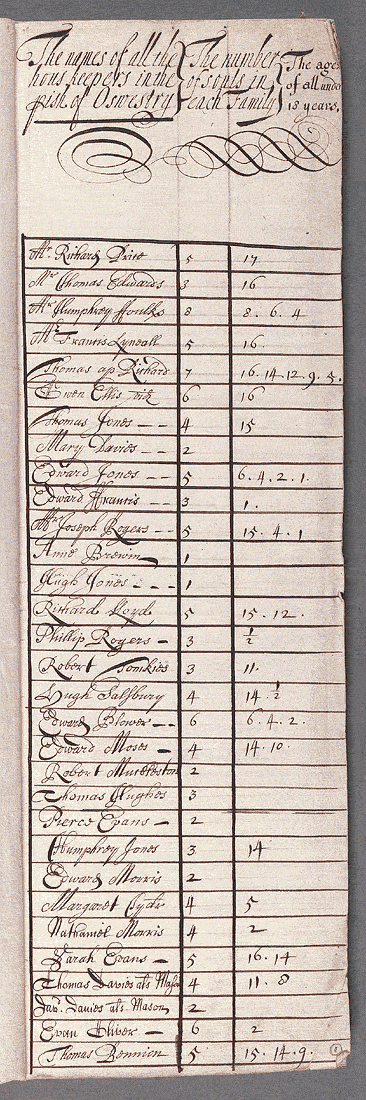 The names of all the hous keepers in the pish of Oswestry
The number of souls in each Family
The ages of all under 18 years.
Mr. Richard Price 5 17
Mr Thomas Edwards 3 16
Mr Humphrey Foulks 8 8. 6. 4
Mr Francis Lyneall 5 16.
Thomas ap Richard 7 16. 14. 12. 9. 5.
Owen Ellis 6 16
Thomas Jones -- 4 15
Mary Davies -- 2
Edward Jones -- 5 6. 4. 2. 1.
Edward Francis -- 3 1.
Mr Joseph Rogers -- 5 15. 4. 1
Anne Brewin 1
Hugh Jones --- 1
Richard Lloyd 5 15. 12.
Phillip Rogers - 3 ½
Robert Tomkies 3 11.
Hugh Salsbury 4 14. ½
Edward Blower -- 6 6. 4. 2.
Edward Moses - 4 14. 10.
Robert 2
Thomas Hughes 3
Pierce Evans - 2
Humphrey Jones 3 14
Edward Morris 2
Margaret 4 5
Nathaniel Morris 4 2
Sarah Evans - 5 16. 14
Thomas Davies als Mason 4 11. 8
Davies als Mason 2
Evan Oliver - 6 2
Thomas Bennion 5 15. 14. 9.